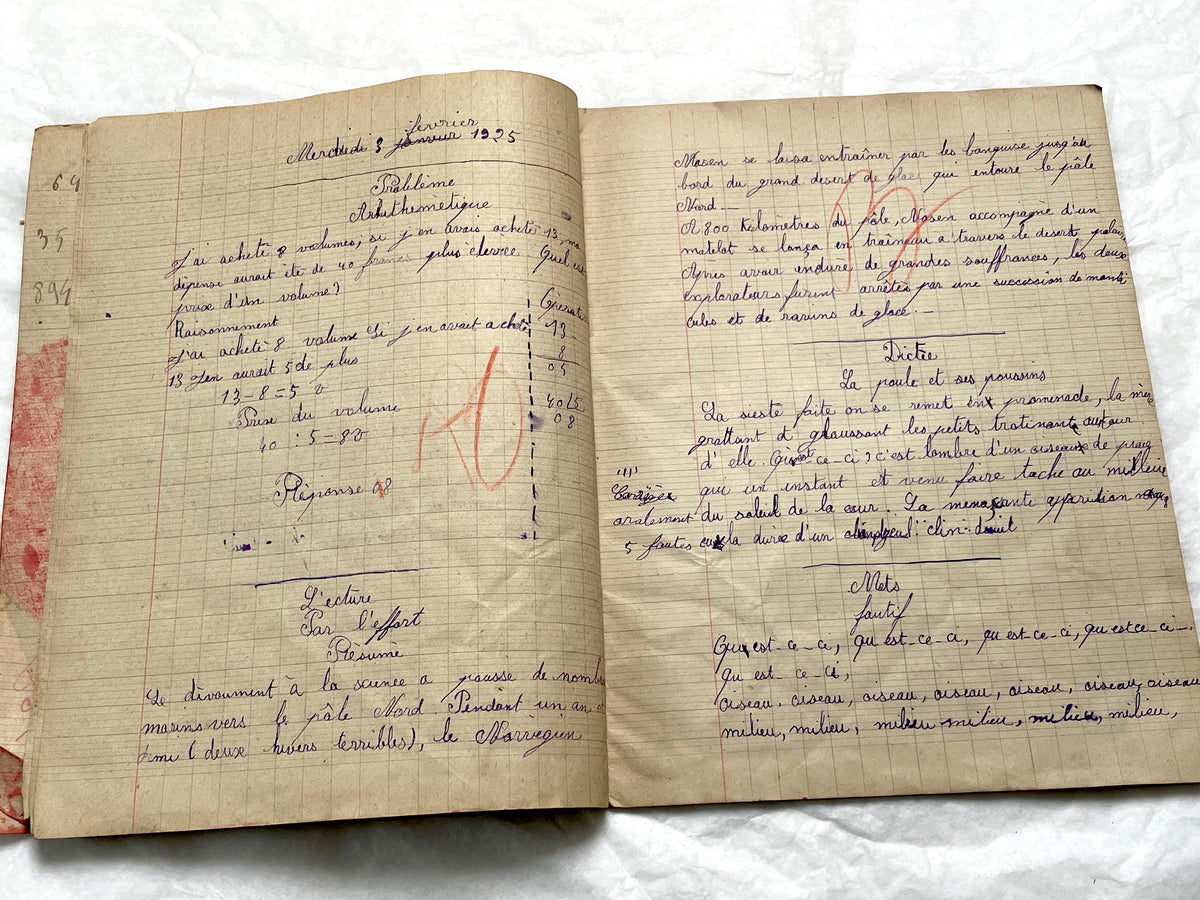 64
35
894
fevrier
Mercredi 3 janvier 1925
Problème
Arhithemetique
J'ai acheté 8 volumes, si j'en avais acheté 13, ma
dépense aurait été de 40 francs plus élevée. Quel est
prix d'un volume?
Raisonnement
J'ai acheté 8 volume Si j'en avait acheté
13 J'en aurait 5 de plus
13-8=5 v
Prix du volume
40 : 5 = 8
Réponse 8
Operati
13-
8
05
40 5
0 8
L'ecture
Par l'effort
Résumé
Le dévoument à la science a poussé de nomb
marins vers le pôle Nord Pendant un an
demi (deux hivers terribles), le Norvégien
Nasen se laisa entraîner par les banquise jusq'au
bord du grand desert de glace qui entoure le pôle
Nord.—
A 800 Kilomètres du pôle, Nasen accompagné d'un
matelot se lança en traîneau a travers le desert polaire
Après avoir enduré de grandes souffrances, les deux
explorateurs furent arrêtés par une succession de monti
cules et de ravins de glace.—
B
Dictée
La poule et ses poussins
La sieste faite on se remet en promenade, la mèr
grattant et gloussant les petits trotinant autour
d'elle. Qu'est-ce-ci? c'est l'ombre d'un oiseau de proie
qui un instant est venu faire tache au milieu
du soleil de la cour. La menaçante apparition
la durée d'un clin-
"1"
Corrigée
oralement
5 fautes
Mots
fautif
Qu'est-ce-ci, qu'est-ce-ci, qu'est-ce-ci, qu'est ce-ci-
qu'est-ce-ci,
oiseau, oiseau, oiseau, oiseau, oiseau, oiseau, oiseau
milieu, milieu, milieu milieu, milieu, milieu,